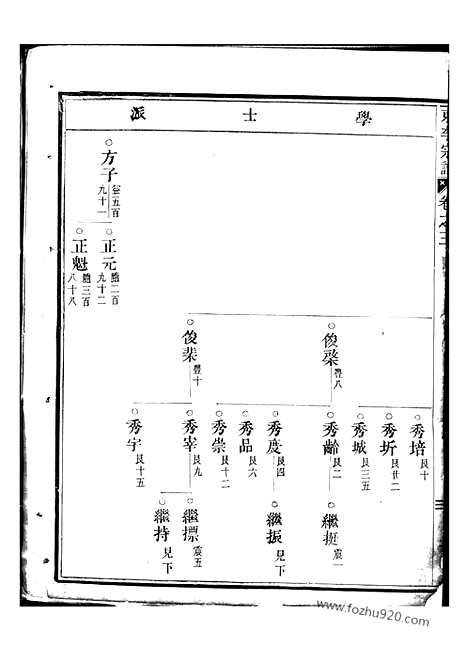 學士派
卷之三
秀培 艮十
秀圻 艮廿二
秀城 艮三五
俊椉 豐八
秀齡 艮二
繼挺 震一
秀度 艮四
繼振 見下
秀品 艮六
秀崇 艮十二
俊棐 豐十
秀宰 艮九
繼摽 震五
繼持 見下
秀宇 艮十五
方子 五百九十一
正元 二百九十二
正魁 三百八十八
www.fozhu920.com